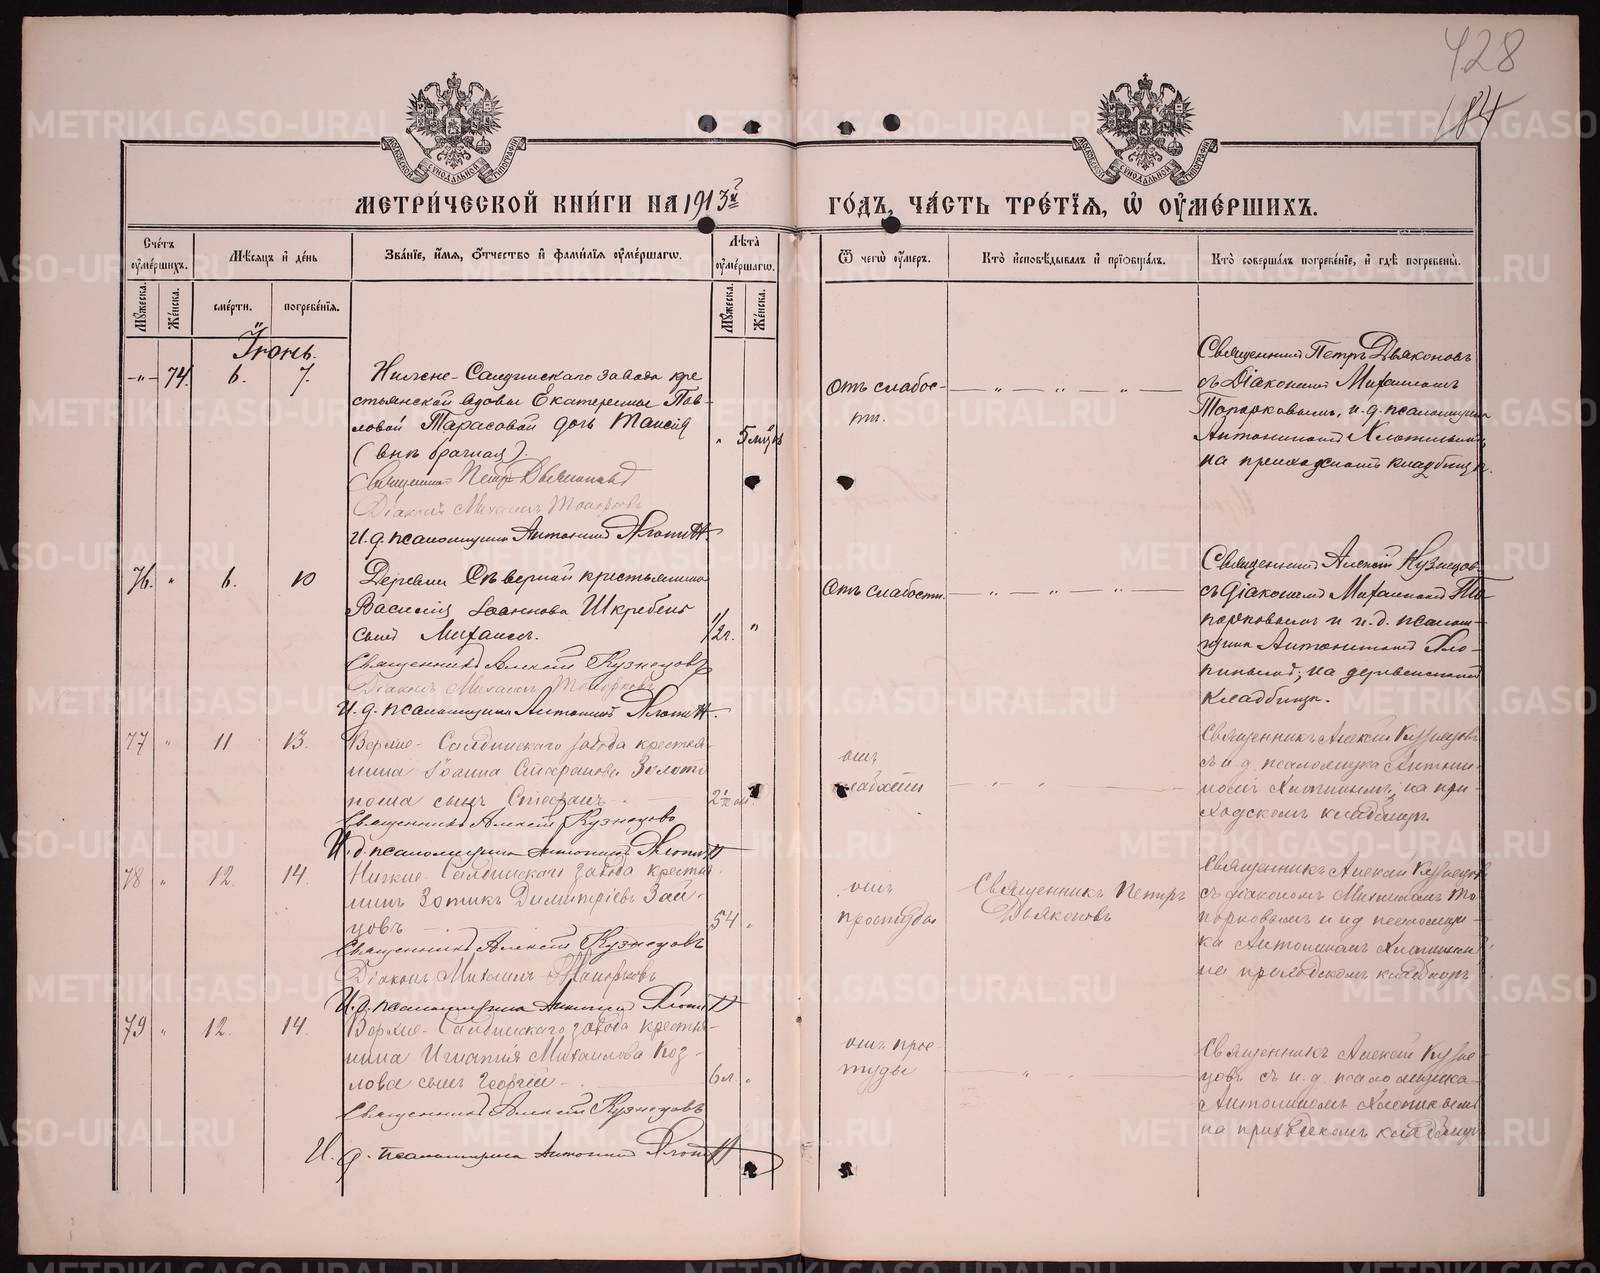 428
184
МЕТРИ́ЧЕСКОЙ КНИ́ГИ НА 1913й
ГО́ДЪ, ЧА́СТЬ ТРЕ́ТЇЯ, Ѿ ОУМЕ́РШИХЪ.
Сче́тъ оуме́ршихъ.
Мѣ́сяцъ и де́нь
Зва́нїе, и́мя, о́тчество и фами́лїя оуме́ршагѡ.
Лѣ́та оуме́ршагѡ.
Ѿ чегѡ̀ оу́меръ.
Кто̀ исповѣ́дывалъ и прїобща́лъ.
Кто̀ соверша́лъ погребе́нїе, и гдѣ̀ погребены̀.
Му́жеска.
Же́нска.
сме́рти.
погребе́нїя.
Му́жеска.
Же́нска.
Іюнь.
-"- 74. 6. 7.
Нижне-Салдинскаго завода кре
стьянской вдовы Екатерины Пав-
ловой Тарасовой дочь Таисія
(внѣ брачная).
" 5 мцвъ
Священникъ Петръ Дьяконовъ
Діаконъ Михаилъ Топорковъ
И. д. псаломщика Антоній Хлопинъ.
Отъ слабос-
ти.
Священникъ Петръ Дьяконовъ
съ Діакономъ Михаиломъ
Топорковымъ, и. д. псаломщика
Антониномъ
на приходскомъ кладбищѣ.
76. " 6. 10
Деревни Сѣверной крестьянина
Василія Іоаннова Шкребень
сынъ Михаилъ.
1/2 г. "
Священникъ Алексій Кузнецовъ
Діаконъ Михаилъ Топорковъ
И. д. псаломщика
Отъ слабости.
Священникъ Алексій Кузнецов
съ Діакономъ Михаиломъ То
порковымъ и и. д. псалом-
щика Антониномъ Хло-
пинымъ, на деревенскомъ
кладбищѣ.
77 " 11 13.
Верхне-Салдинскаго завода крестья-
нина Іоанна Золот
сынъ Стефанъ
2 1/2 "
Священникъ Алексій Кузнецовъ
И. д. псаломщика
отъ
слабости
Священникъ Алексій Кузнецовъ
съ и д псаломщика Антони-
номъ Хлопинымъ, на при-
ходскомъ кладбищѣ.
78 " 12. 14.
Нижне-Салдинскаго завода крестья
нинъ Зотикъ Димитріевъ Зай-
цовъ
54 "
Священникъ Алексій Кузнецовъ
Діаконъ Михаилъ Топорковъ
И. д. псаломщика
отъ
простуды
Священникъ Петръ
Дьяконовъ
Священникъ Алексій Кузнецовъ
съ діакономъ Михаиломъ То
порковымъ и и д псаломщи-
ка Антониномъ Хлопинымъ
на приходскомъ кладбищѣ
79 " 12. 14
Верхне-Салдинскаго завода крестья-
нина Игнатія Михаилова Коз-
лова сынъ Георгій
6 л. "
Священникъ Алексій Кузнецовъ
И. д. псаломщика
отъ прос-
туды
Священникъ Алексій Кузне-
цовъ съ и. д. псаломщика
Антониномъ Хлопинымъ
на приходскомъ кладбищѣ